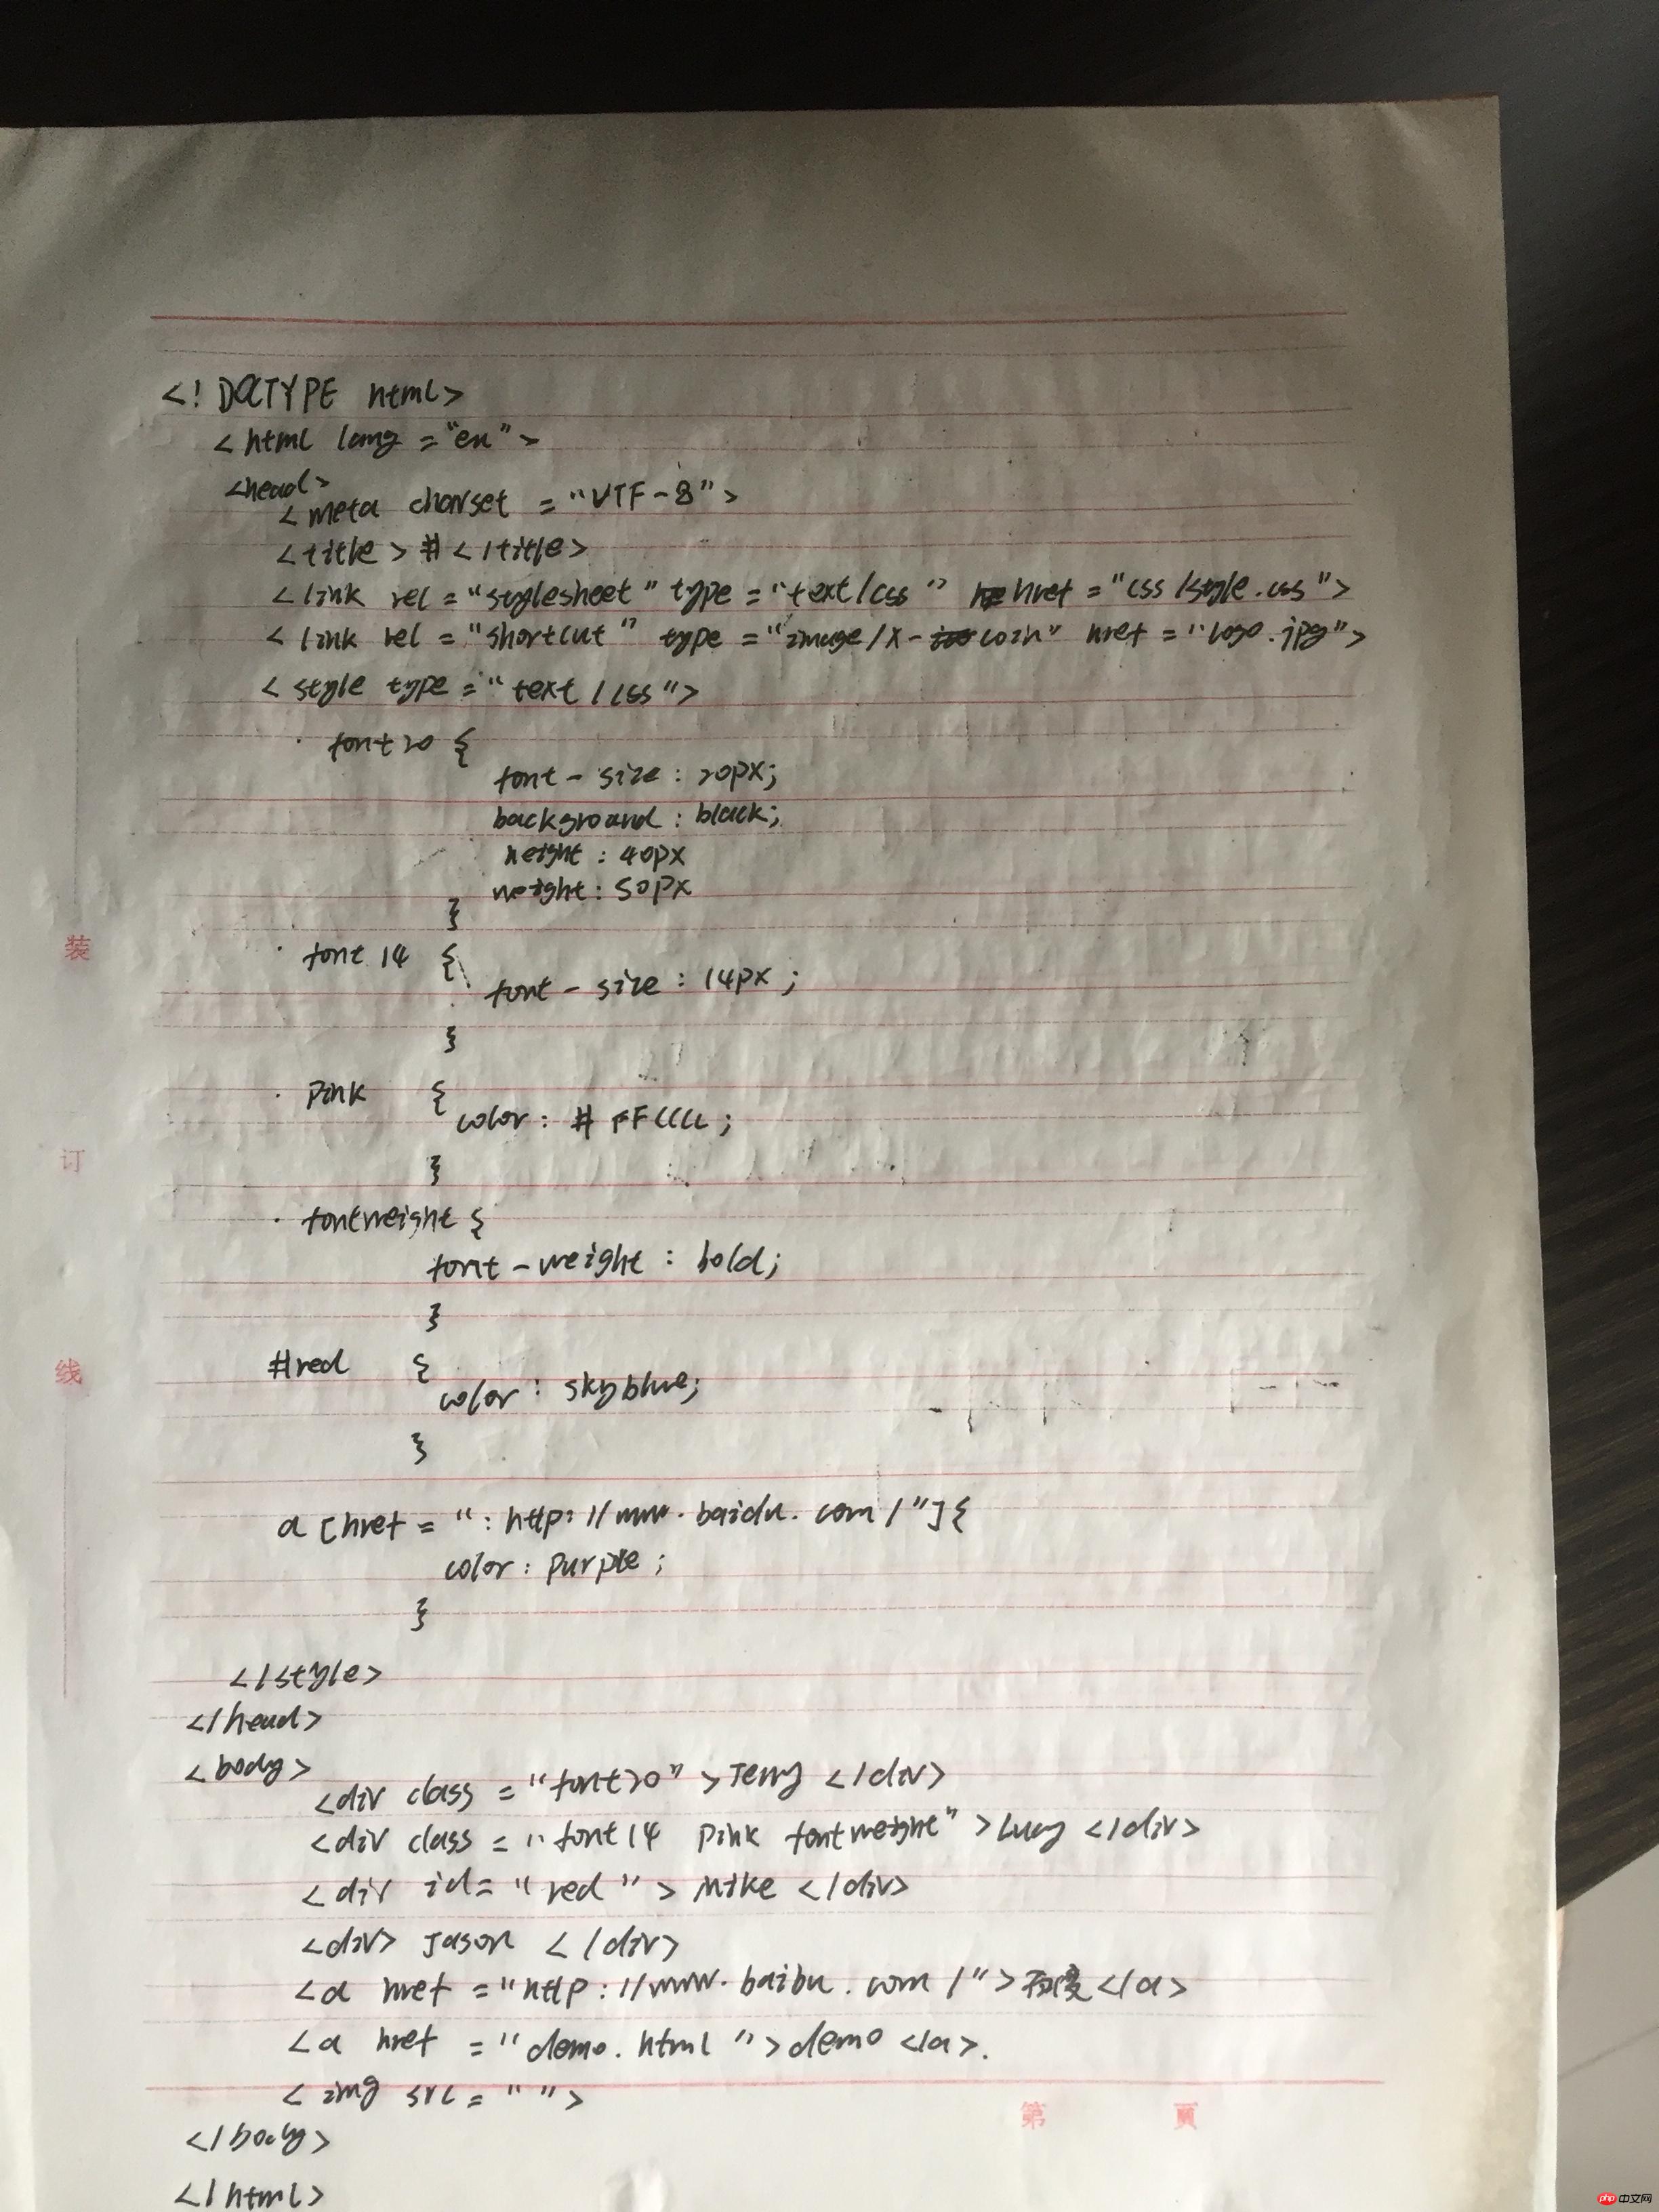 <!DOCTYPE html>
<html lang="en">
<head>
<meta charset="UTF-8">
<title>#</title>
<link rel="stylesheet" type="text/css" href="css/style.css">
<link rel="shortcut" type="image/x-coin" href="logo.jpg">
<style type="text/css">
.font20 {
font-size:20px;
background:black;
height:40px
weight:50px
}
.font14 {
font-size:14px;
}
.pink {
color:#FFCCCC;
}
.fontweight{
font-weight:bold;
}
#red {
color:skyblue;
}
装
订
线
a[href=":http://www.baidu.com/"]{
color:purple;
}
</style>
</head>
<body>
<div class="font20">Jerry</div>
<div class="font14 pink fontweight">Lucy</div>
<div id="red">Mike</div>
<div>Jason</div>
<a href="http://www.baibu.com/">百度</a>
<a href="demo.html">demo</a>.
<img src="">
第 页
</body>
</html>
php中文网